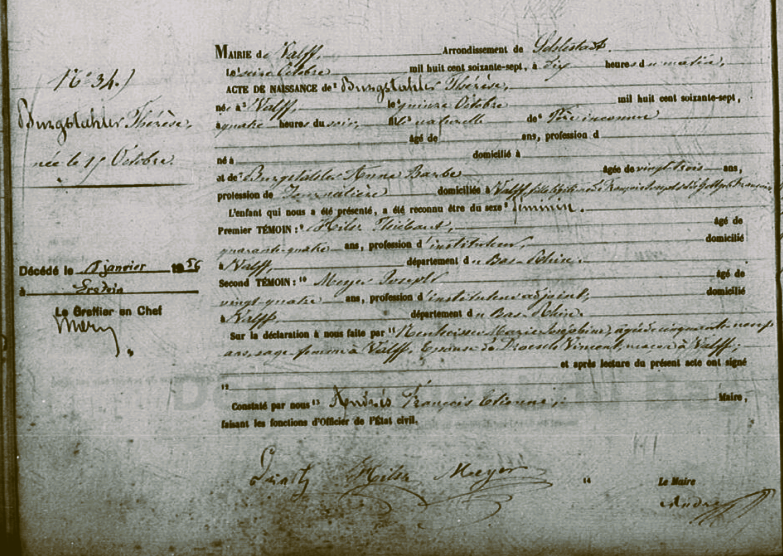 N° 34.
Burgstahler Thérèse,
née le 15 Octobre.
Décédé le janvier 1956
à
Le Greffier en Chef
MAIRIE de Valff, Arrondissement de Schlestadt.
Le seize Octobre mil huit cent soixante-sept, à dix heures du matin,
ACTE DE NAISSANCE de Burgstahler Thérèse,
née à Valff, le quinze Octobre mil huit cent soixante-sept,
à quatre heures du soir, fille naturelle de Père inconnu
âgé de ans, profession d
né à domicilié à
et de Burgstahler Anne Barbe âgée de vingt-trois ans,
profession de Journalière domiciliée à Valff, fille légitime de François Joseph
L'enfant qui nous a été présenté, a été reconnu être du sexe féminin.
Premier TÉMOIN: Hilss Thiébaut, âgé de
quarante-quatre ans, profession d'instituteur, domicilié
à Valff, département du Bas-Rhin.
Second TÉMOIN: Meyer Joseph âgé de
vingt-quatre ans, profession d'instituteur adjoint, domicilié
à Valff, département du Bas-Rhin.
Sur la déclaration à nous faite par Marie Joséphine, âgée de cinquante-neuf
ans, sage-femme à Valff, Epouse de Vincent, à Valff;
et après lecture du présent acte ont signé
12
Constaté par nous 13 Andrès François Etienne, Maire,
faisant les fonctions d'Officier de l'État civil.
Hilss Meyer 14 Le Maire
Andrès